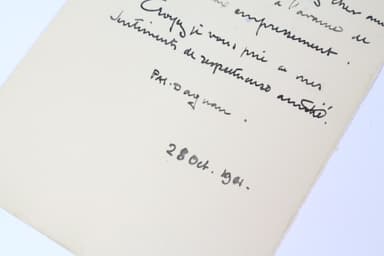 cher
à l'avance de
empressement.
Croyez je vous prie a mes
sentiments de respectueuse amitié.
PAJ-Dagnan.
28 Oct. 1901.